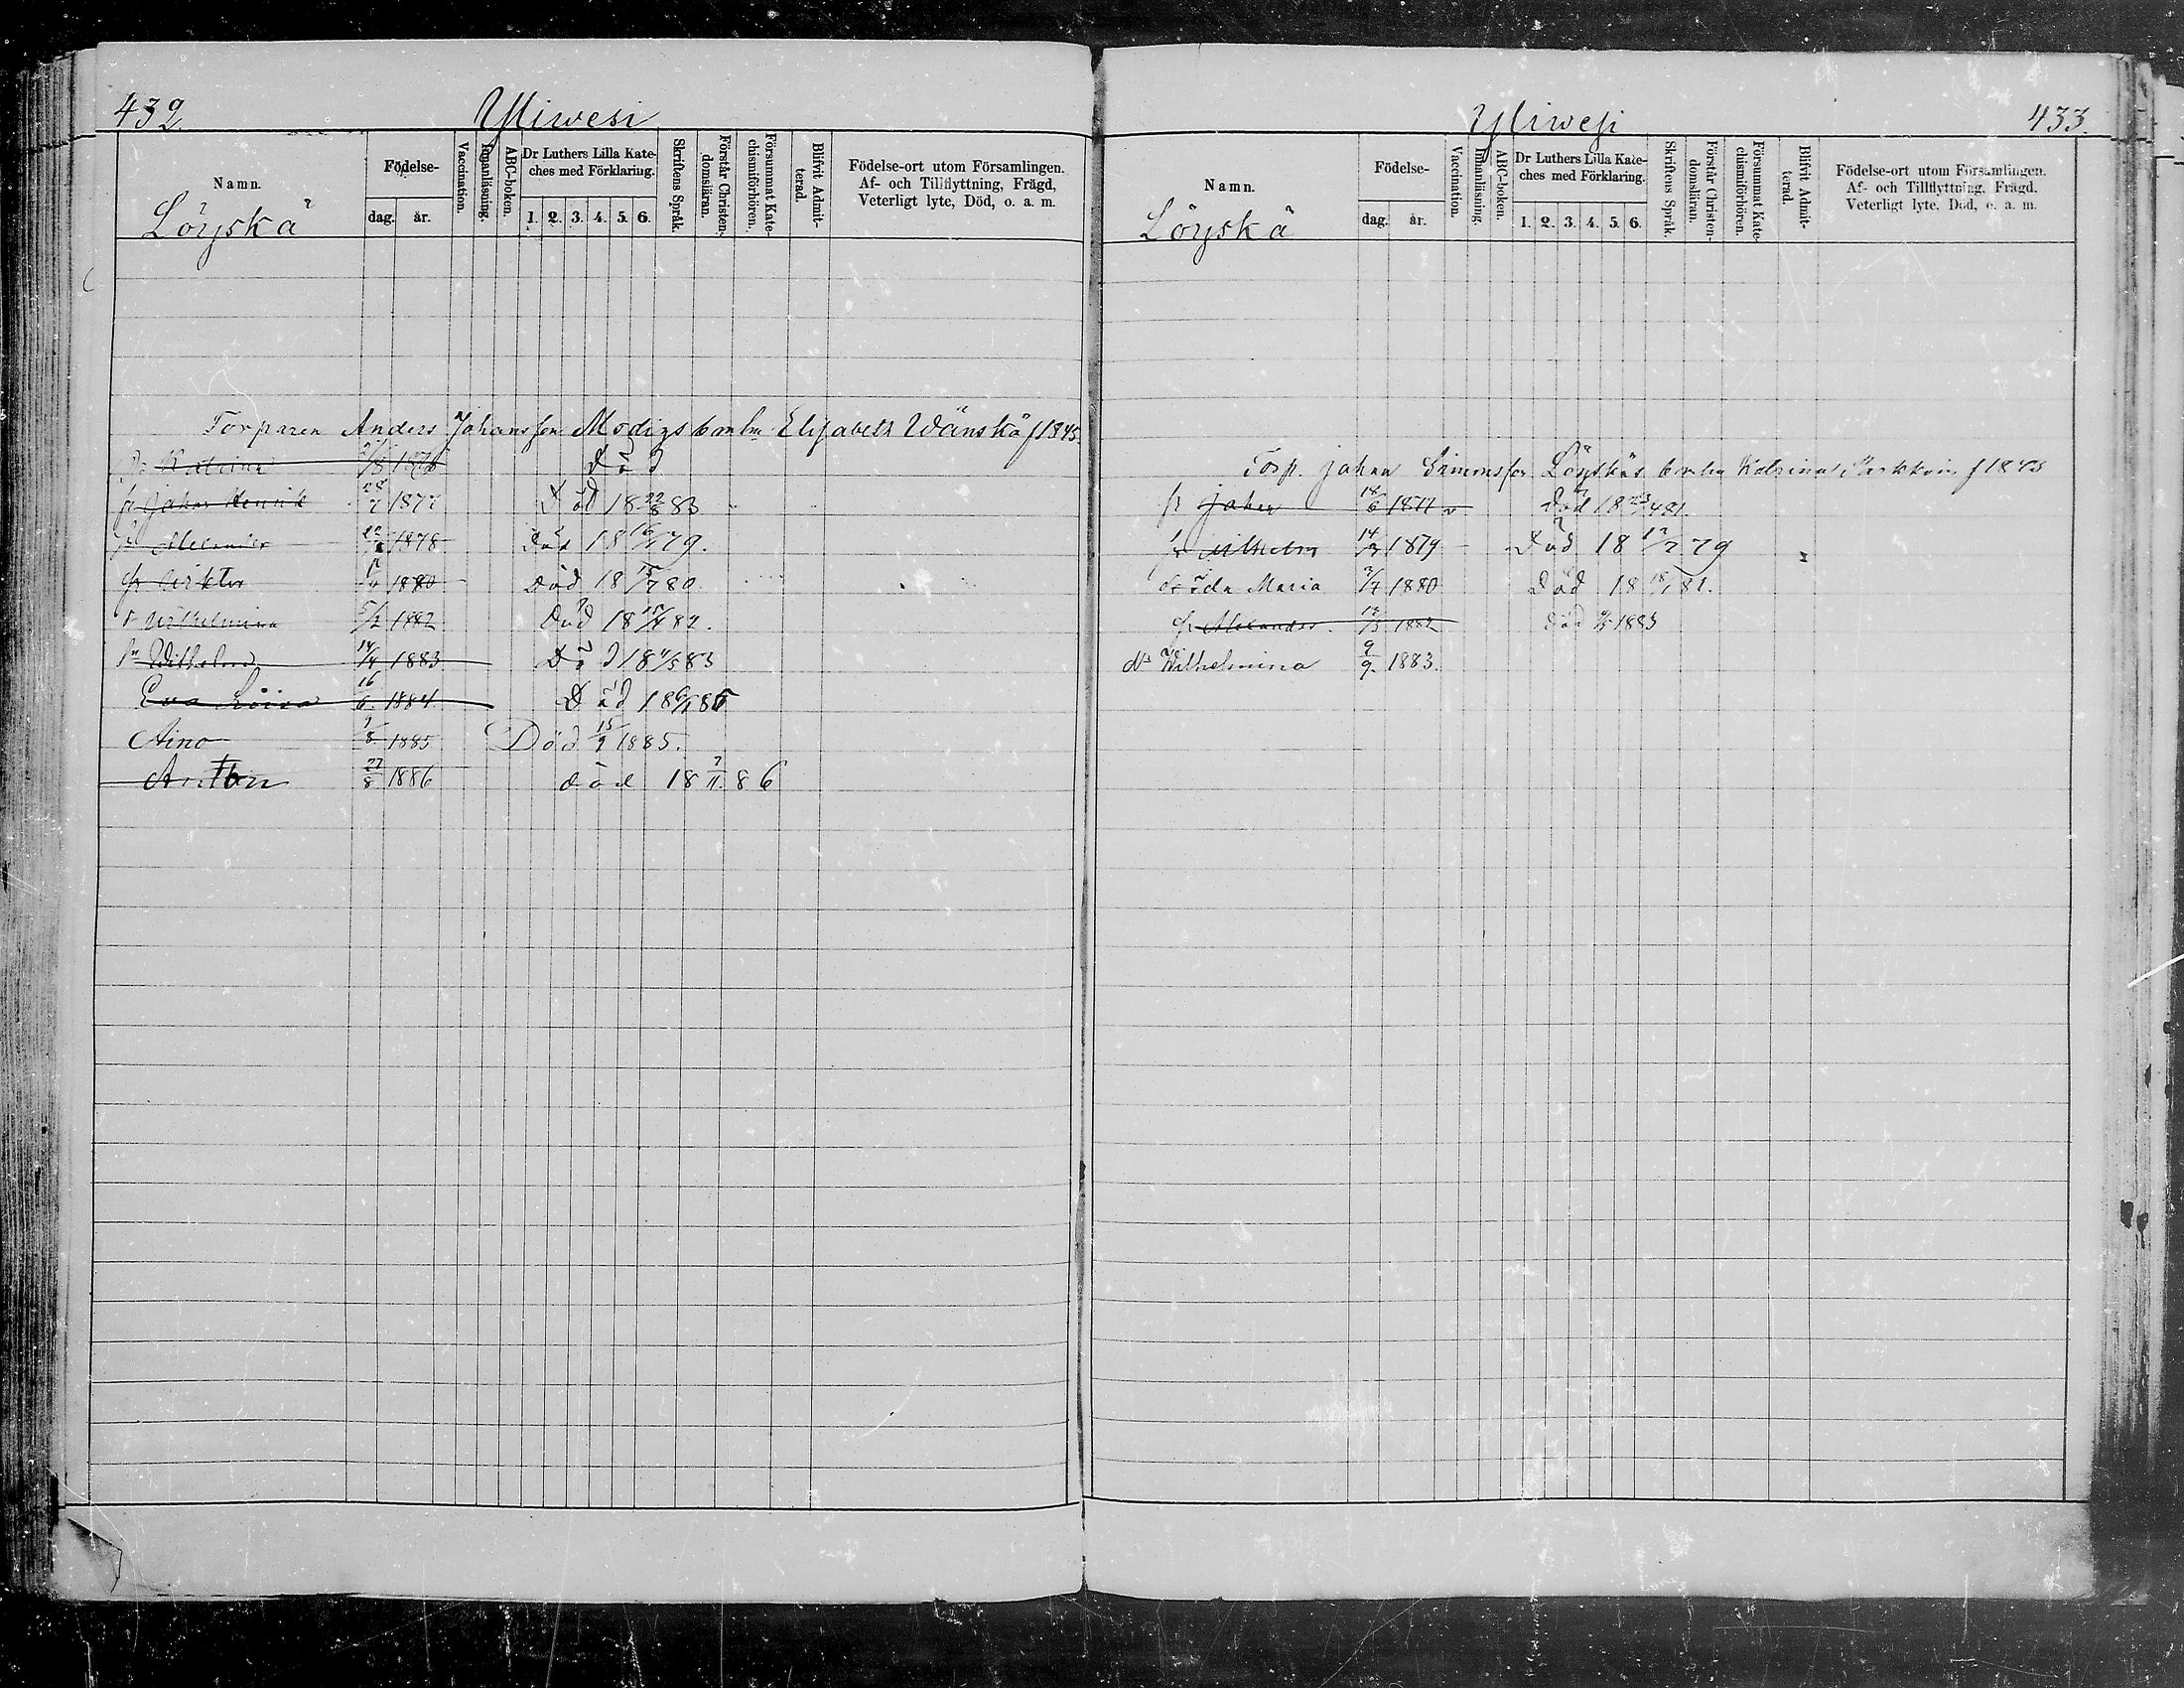 432.
Yliwesi
Namn.
Födelse-
dag. år.
Vaccination.
Innanläsning.
ABC-boken.
Dr Luthers Lilla Kate-
ches med Förklaring.
1. 2. 3. 4. 5. 6.
Skriftens Språk.
Förstår Christen-
domsläran.
Försummat Kate-
chismiförhören.
Blifvit Admit-
terad.
Födelse-ort utom Församlingen.
Af- och Tillflyttning, Frägd,
Veterligt lyte, Död, o. a. m.
Löyskä
Torparen Anders Johansson Modigs Elisabeth Wänskä f 1845.
Katrina Död
Johan Henrik 28/7 1877 Död 18 22/8 83
Alexander 1878 Död 18 79.
Wiktor 1880 Död 18 15/7 80
Wilhelmina 5/2 1882 Död 18 82.
Wilhelm 14/4 1883 Död 18 83
Eva Loisa 16/6 1884 Död 18 85
Aino 1885 Död 15/9 1885.
Anton 27/8 1886 död 18 7/11 86
Yliwesi
433.
Namn.
Födelse-
dag. år.
Vaccination.
Innanläsning.
ABC-boken.
Dr Luthers Lilla Kate-
ches med Förklaring.
1. 2. 3. 4. 5. 6.
Skriftens Språk.
Förstår Christen-
domsläran.
Försummat Kate-
chismiförhören.
Blifvit Admit-
terad.
Födelse-ort utom Församlingen.
Af- och Tillflyttning, Frägd.
Veterligt lyte, Död, o. a. m.
Löyskä
Torp. Johan Simonsson Löyskäs Katrina f 1848
Johan v Död 18 81.
Wilhelm 14 1879 Död 18 79
Ida Maria 1880 Död 18 81.
Alexander 1882 död 1883
Wilhelmina 9/9. 1883.